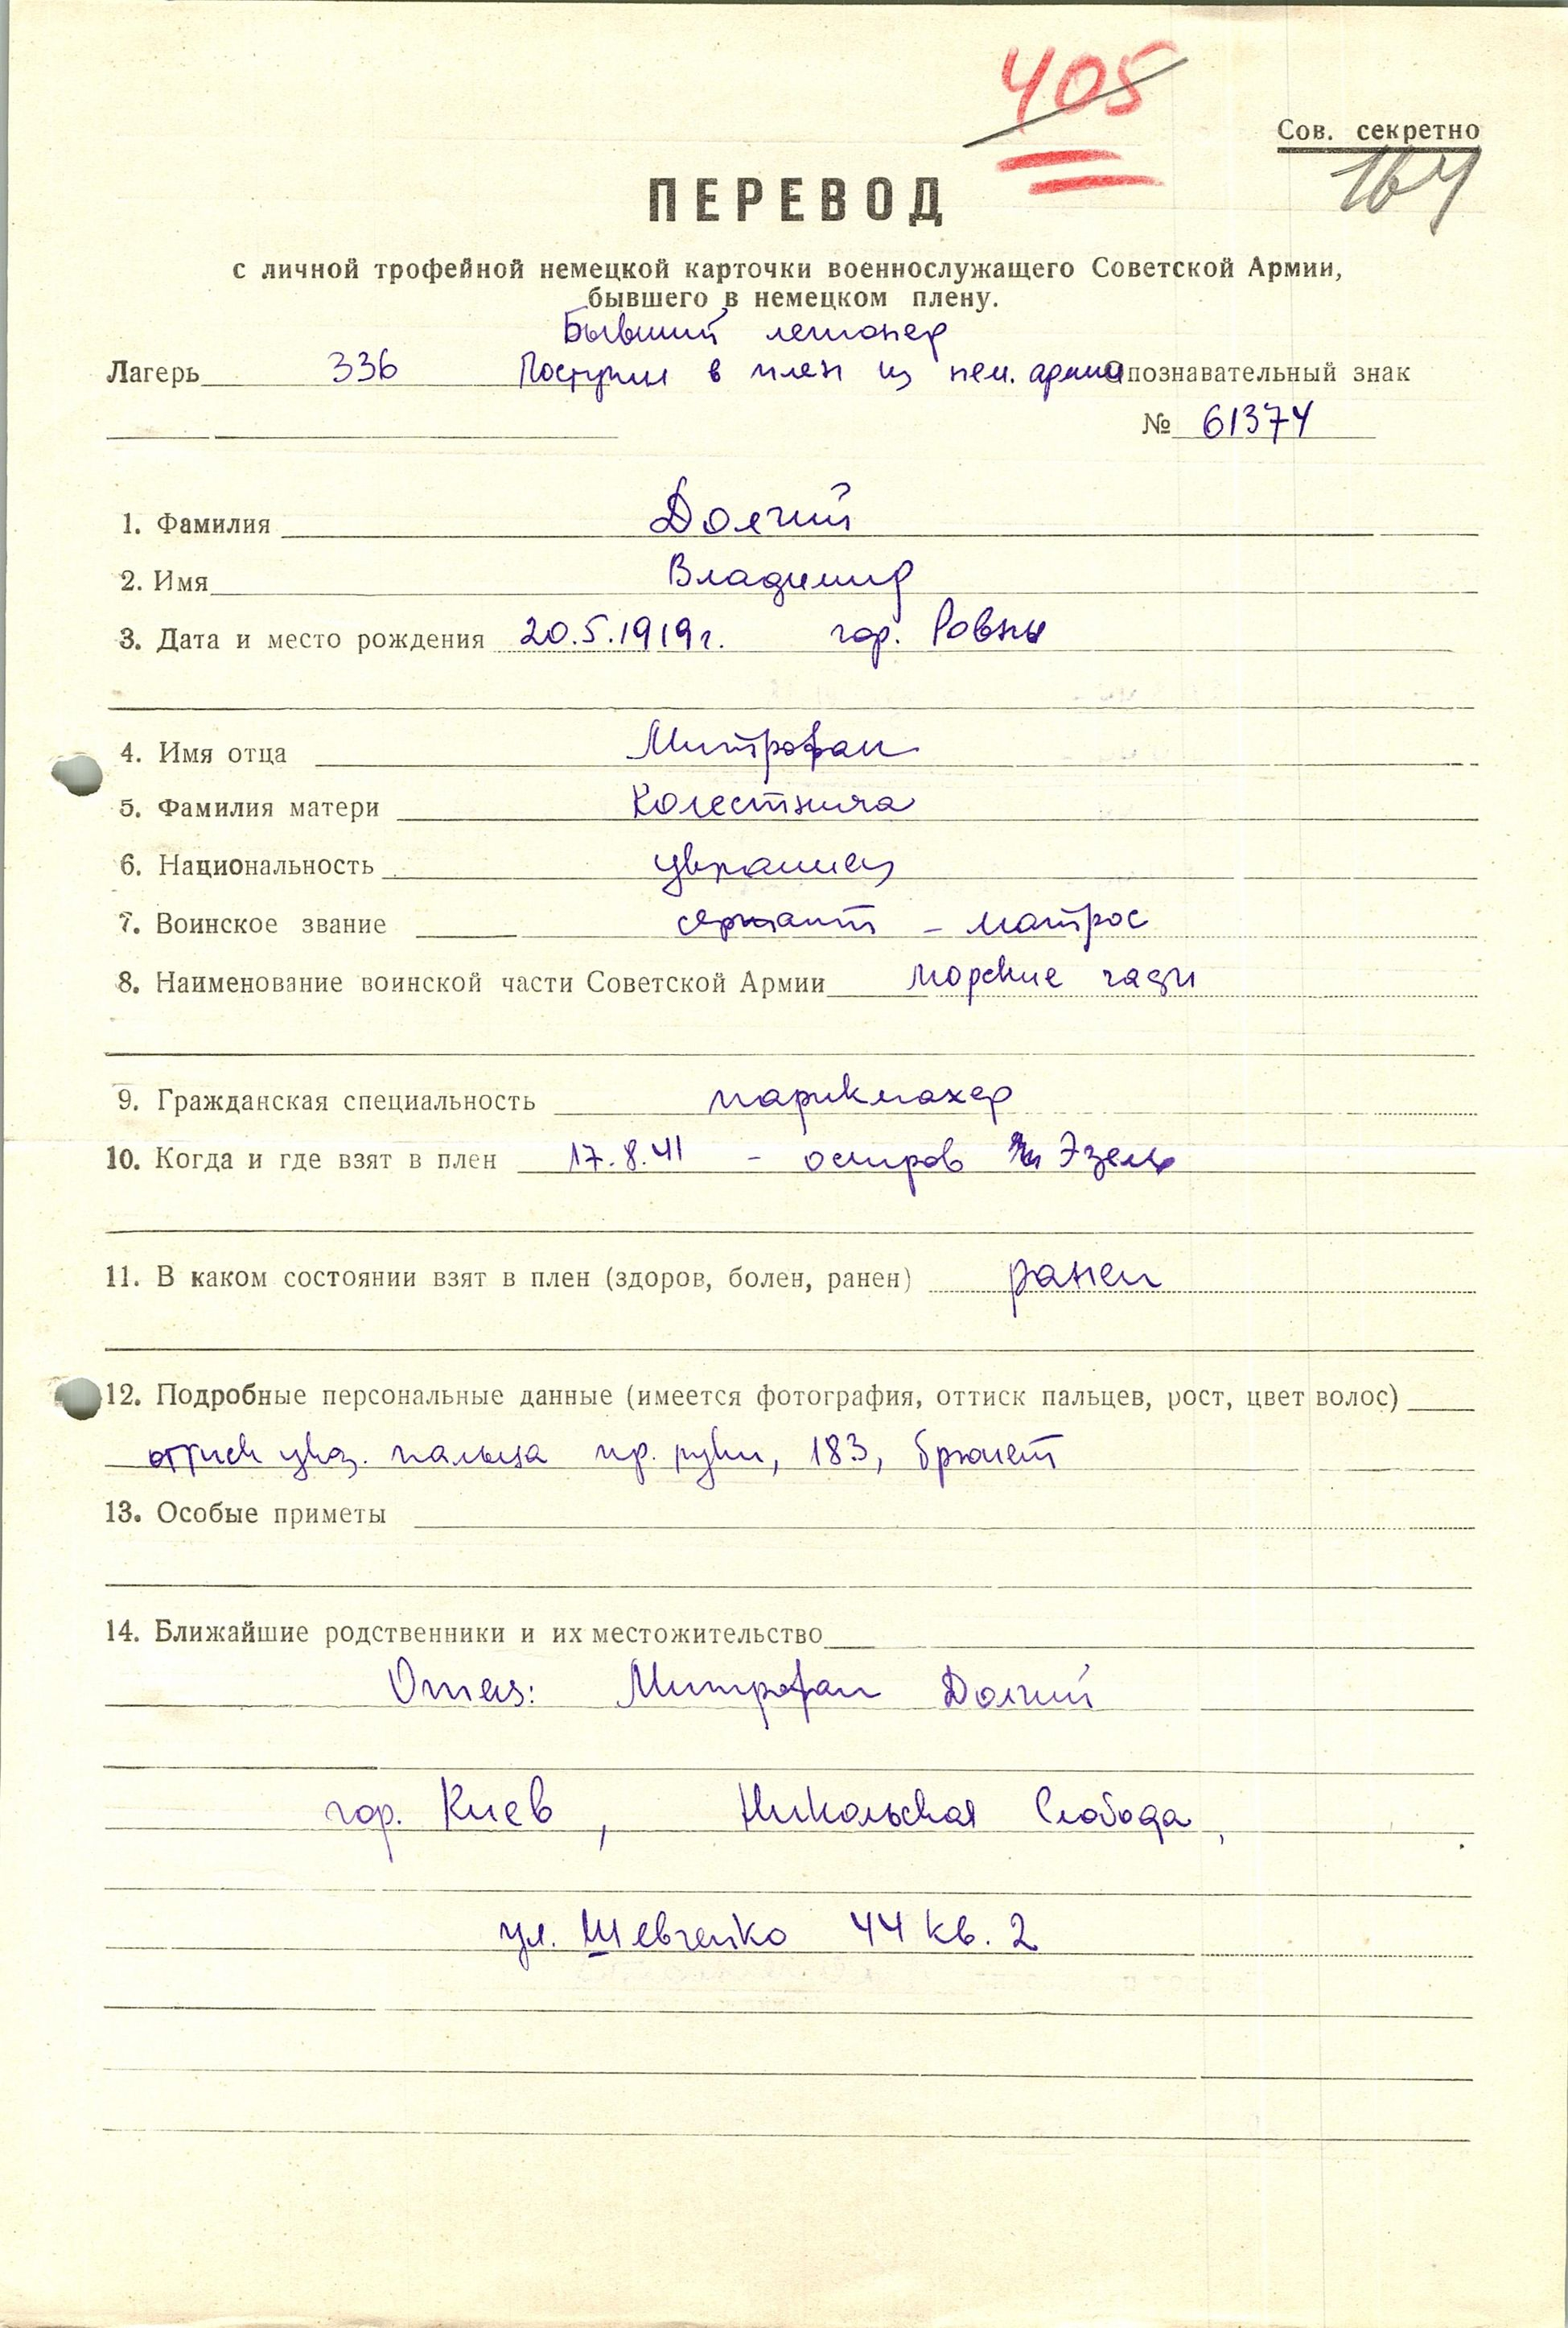 405
Сов. секретно
164
ПЕРЕВОД
с личной трофейной немецкой карточки военнослужащего Советской Армии,
бывшего в немецком плену.
Бывший легионер
Лагерь 336 Поступил в плен из нем. армии Опознавательный знак
№ 61374
1. Фамилия Долгий
2. Имя Владимир
3. Дата и место рождения 20.5.1919г. гор. Ровны
4. Имя отца Митрофан
5. Фамилия матери
6. Национальность украинец
7. Воинское звание сержант - матрос
8. Наименование воинской части Советской Армии морские части
9. Гражданская специальность парикмахер
10. Когда и где взят в плен 17.8.41 - остров Эзель
11. В каком состоянии взят в плен (здоров, болен, ранен) ранен
12. Подробные персональные данные (имеется фотография, оттиск пальцев, рост, цвет волос)
оттиск указ. пальца пр. руки, 183, брюнет
13. Особые приметы
14. Ближайшие родственники и их местожительство
Отец: Митрофан Долгий
гор. Киев, Никольская Слобода,
ул. Шевченко 44 кв. 2